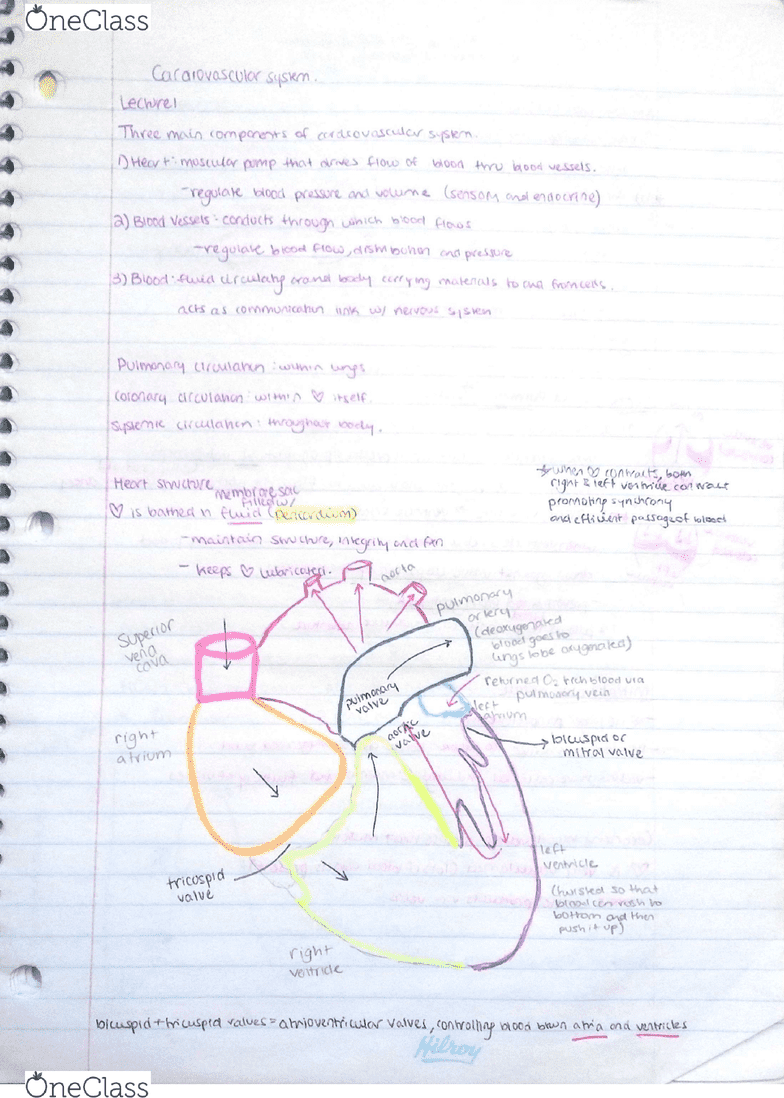 OneClass
Cardiovascular system.
Lecture 1
Three main components of cardiovascular system.
1) Heart: muscular pump that drives flow of blood thru blood vessels.
-regulate blood pressure and volume (sensory and endocrine)
2) Blood Vessels: conducts through which blood flows
-regulate blood flow, distribution and pressure
3) Blood: fluid circulating around body carrying materials to and from cells.
acts as communication link w/ nervous system
Pulmonary circulation: within lungs
coronary circulation: within ♡ itself.
systemic circulation: throughout body.
Heart structure
membrane sac
filled w/
♡ is bathed in fluid (pericardium)
- maintain structure, integrity and fxn
- keeps ♡ lubricated.
☆ when ♡ contracts, both
right & left ventricle contract
promoting synchrony
and efficient passage of blood
aorta
superior
vena
cava
pulmonary
artery
(deoxygenated
blood goes to
lungs to be oxygenated)
pulmonary
valve
returned O2 rich blood via
pulmonary vein
left
atrium
aortic
valve
bicuspid or
mitral valve
right
atrium
left
ventricle
(twisted so that
blood can rush to
bottom and then
push it up)
tricuspid
valve
right
ventricle
bicuspid + tricuspid valves = atrioventricular valves, controlling blood btwn atria and ventricles
Hilroy
OneClass